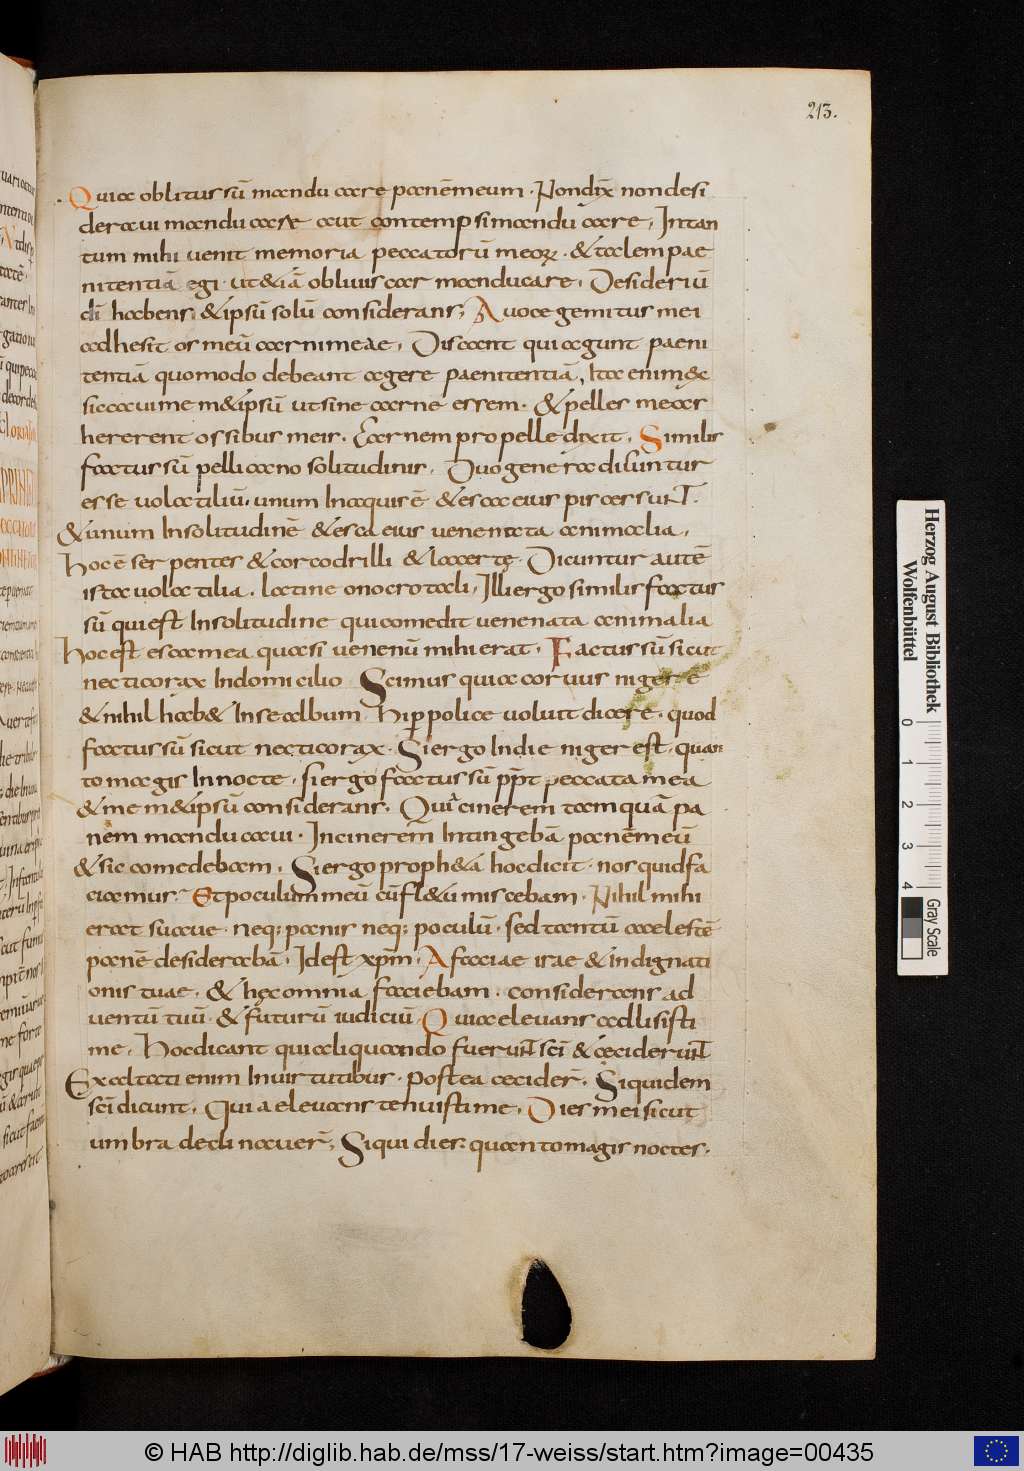 213.
Quia oblitus sū manducare panēmeum · Nondix̄ non desi
deraui manducare aut contempsi manducare, Intan
tum mihi uenit memoria peccatorū meoꝝ · & talem pae
nitentiā egi · ut&iā obliuiscar manducare, Desideriū
dī habens, &ipsū solū considerans; A uoce gemitus mei
adhesit os meū carni meae, Discant qui agunt paeni
tentiā quomodo debeant agere paenitentiā, Ita enim &
siccaui me m&ipsū ut sine carne essem. & pelles meae
hererent ossibus meis. Carnem pro pelle dixit, Similis
factus sū pellicano solitudinis, Duo genera dicuntur
esse uolatiliū, unum In aquis ē & esca eius pisces sunt.
& unum In solitudinē & esca eius uenenata animalia,
Hoc ē serpentes & corcodrilli & lacertę. Dicuntur autē
ista uolatilia. latine onocrotali, Illi ergo similis factus
sū qui est In solitudine qui comedit uenenata animalia
Hoc est esca mea quasi uenenū mihi erat, Factus sū sicut
necticorax In domicilio Scimus quia coruus niger ē
& nihil hab& In se album. Hic pellice uoluit dicere. quod
factus sū sicut necticorax. Si ergo In die niger est. quan
to magis In nocte, si ergo factus sū pp̄t peccata mea
& me m&ipsū considerans. Quia cinerem tamquā pa
nem manducaui · In cinerem Intingebā panēmeū
& sic comedebam, Si ergo proph&a hoc dicit · nos quid fa
ciamus? Et poculum meū cū fl&u miscebam. Nihil mihi
erat suaue · neq; panis neq; poculū · sed tantū caelestē
panē desiderabā, Id est xpm̄, A faciae irae & indignati
onis tuae, & hęc omnia faciebam. considerans ad
uentū tuū. & futurū iudiciū. Quia eleuans adlisisti
me, Hoc dicant qui aliquando fuerunt sc̄i & ceciderunt
Exaltati enim In uirtutibus. postea ceciderꝫ. Siquidem
sc̄i dicunt, Quia eleuans tenuisti me, Dies mei sicut
umbra declinauerꝫ, Si qui dies. quanto magis noctes.
Herzog August Bibliothek
Wolfenbüttel
0 1 2 3 4
Gray Scale
© HAB http://diglib.hab.de/mss/17-weiss/start.htm?image=00435